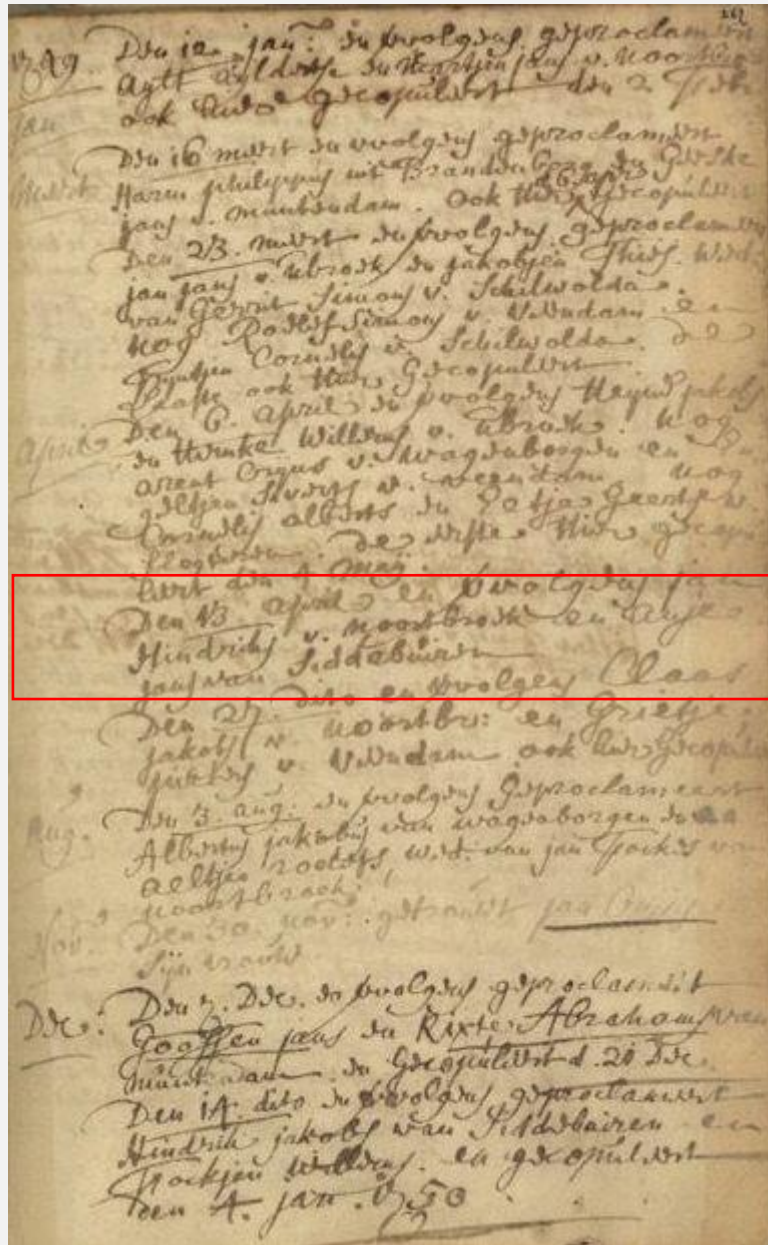 262
1749 Den 12 jan: en vvolgens geproclameert
Aylt en Heertjen jans v. Noortbroek
Jan ook hier gecopuleert den 2 Feb
Den 16 meert en vvolgens geproclameert
Meert Harm philippus uit Brandenborg en Geeske
jans v. muntendam. ook hier gecopuleert
Den 23. meert en vvolgens geproclameert
jan jans v. Nbroek en jakobjen Thies wed:
van Gerrit Simons v. Schilwolda.
nog Roelef Simons v. Veendam en
Trijntjen Cornelis v. Schilwolda. de
laaste ook hier Gecopuleert
Den 6. april en vvolgens jakobs
April en Hemke Willems v. Nbroek. Nog
arent v. wagenborgen en
geltjen Siverts v. veendam nog
Cornelis alberts en Geerts v.
Slogteren. de eerste hier gecopu
leert den 4 maij
Den 13 april en vvolgens jan
Hindriks v. noortbroek en Antje
jans van Siddebuiren
Den 27. dito en vvolgens Claas
jakobs v. Noortbr: en Grietje
v. Veendam ook hier Gecopuleert
Aug. Den 3. aug. en vvolgens Geproclameert
Albertus jakobus van wagenborgen en
Aeltjen roelefs wed. van jan Fockes van
noortbroek
Nov. Den 30. nov: getrouwt jan
Sijn vrouw
Dec: Den 7. Dec. en vvolgens geproclameert
Goossen jans en Rixte Abrahams van
muntendam en Gecopuleert d. 21 Dec.
Den 14. dito en vvolgens geproclameert
Hindrik jakobs van Siddebuiren en
Fockjen Willems. en gecopuleert
den 4. jan. 1750